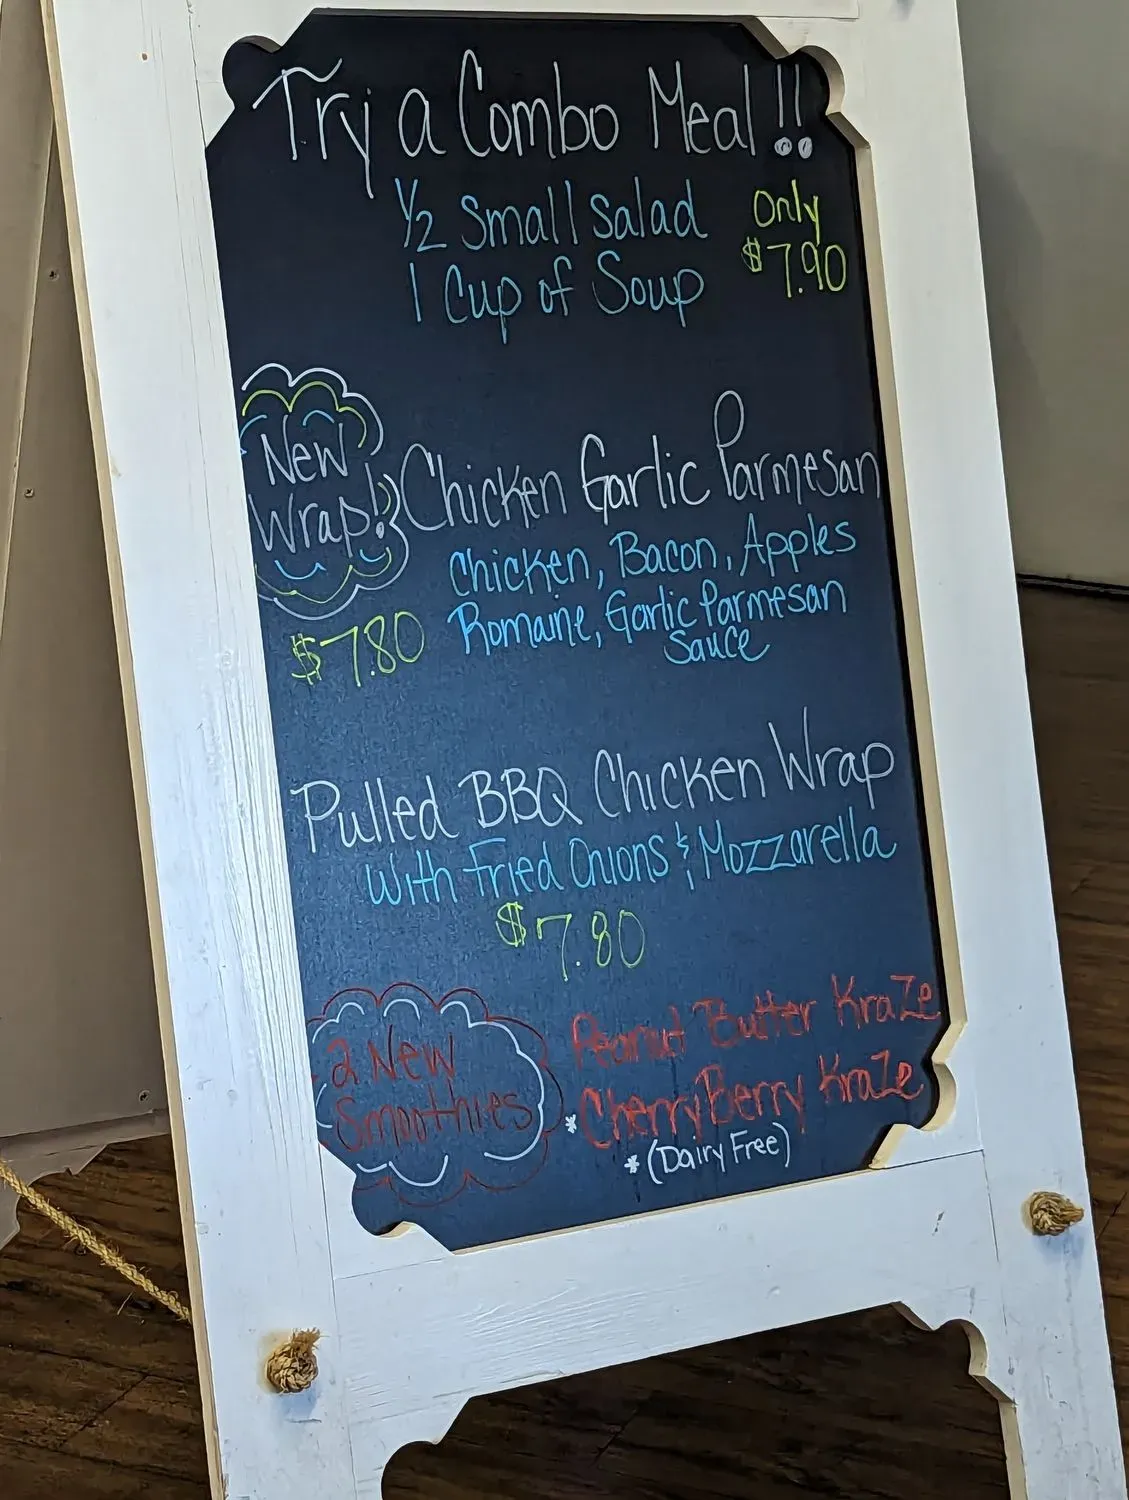 Try a Combo Meal!!
1/2 Small Salad
1 Cup of Soup
Only
$7.90
New
Wrap!
Chicken Garlic Parmesan
Chicken, Bacon, Apples
Romaine, Garlic Parmesan
Sauce
$7.80
Pulled BBQ Chicken Wrap
With Fried Onions & Mozzarella
$7.80
2 New
Smoothies
Peanut Butter KraZe
*CherryBerry KraZe
*(Dairy Free)